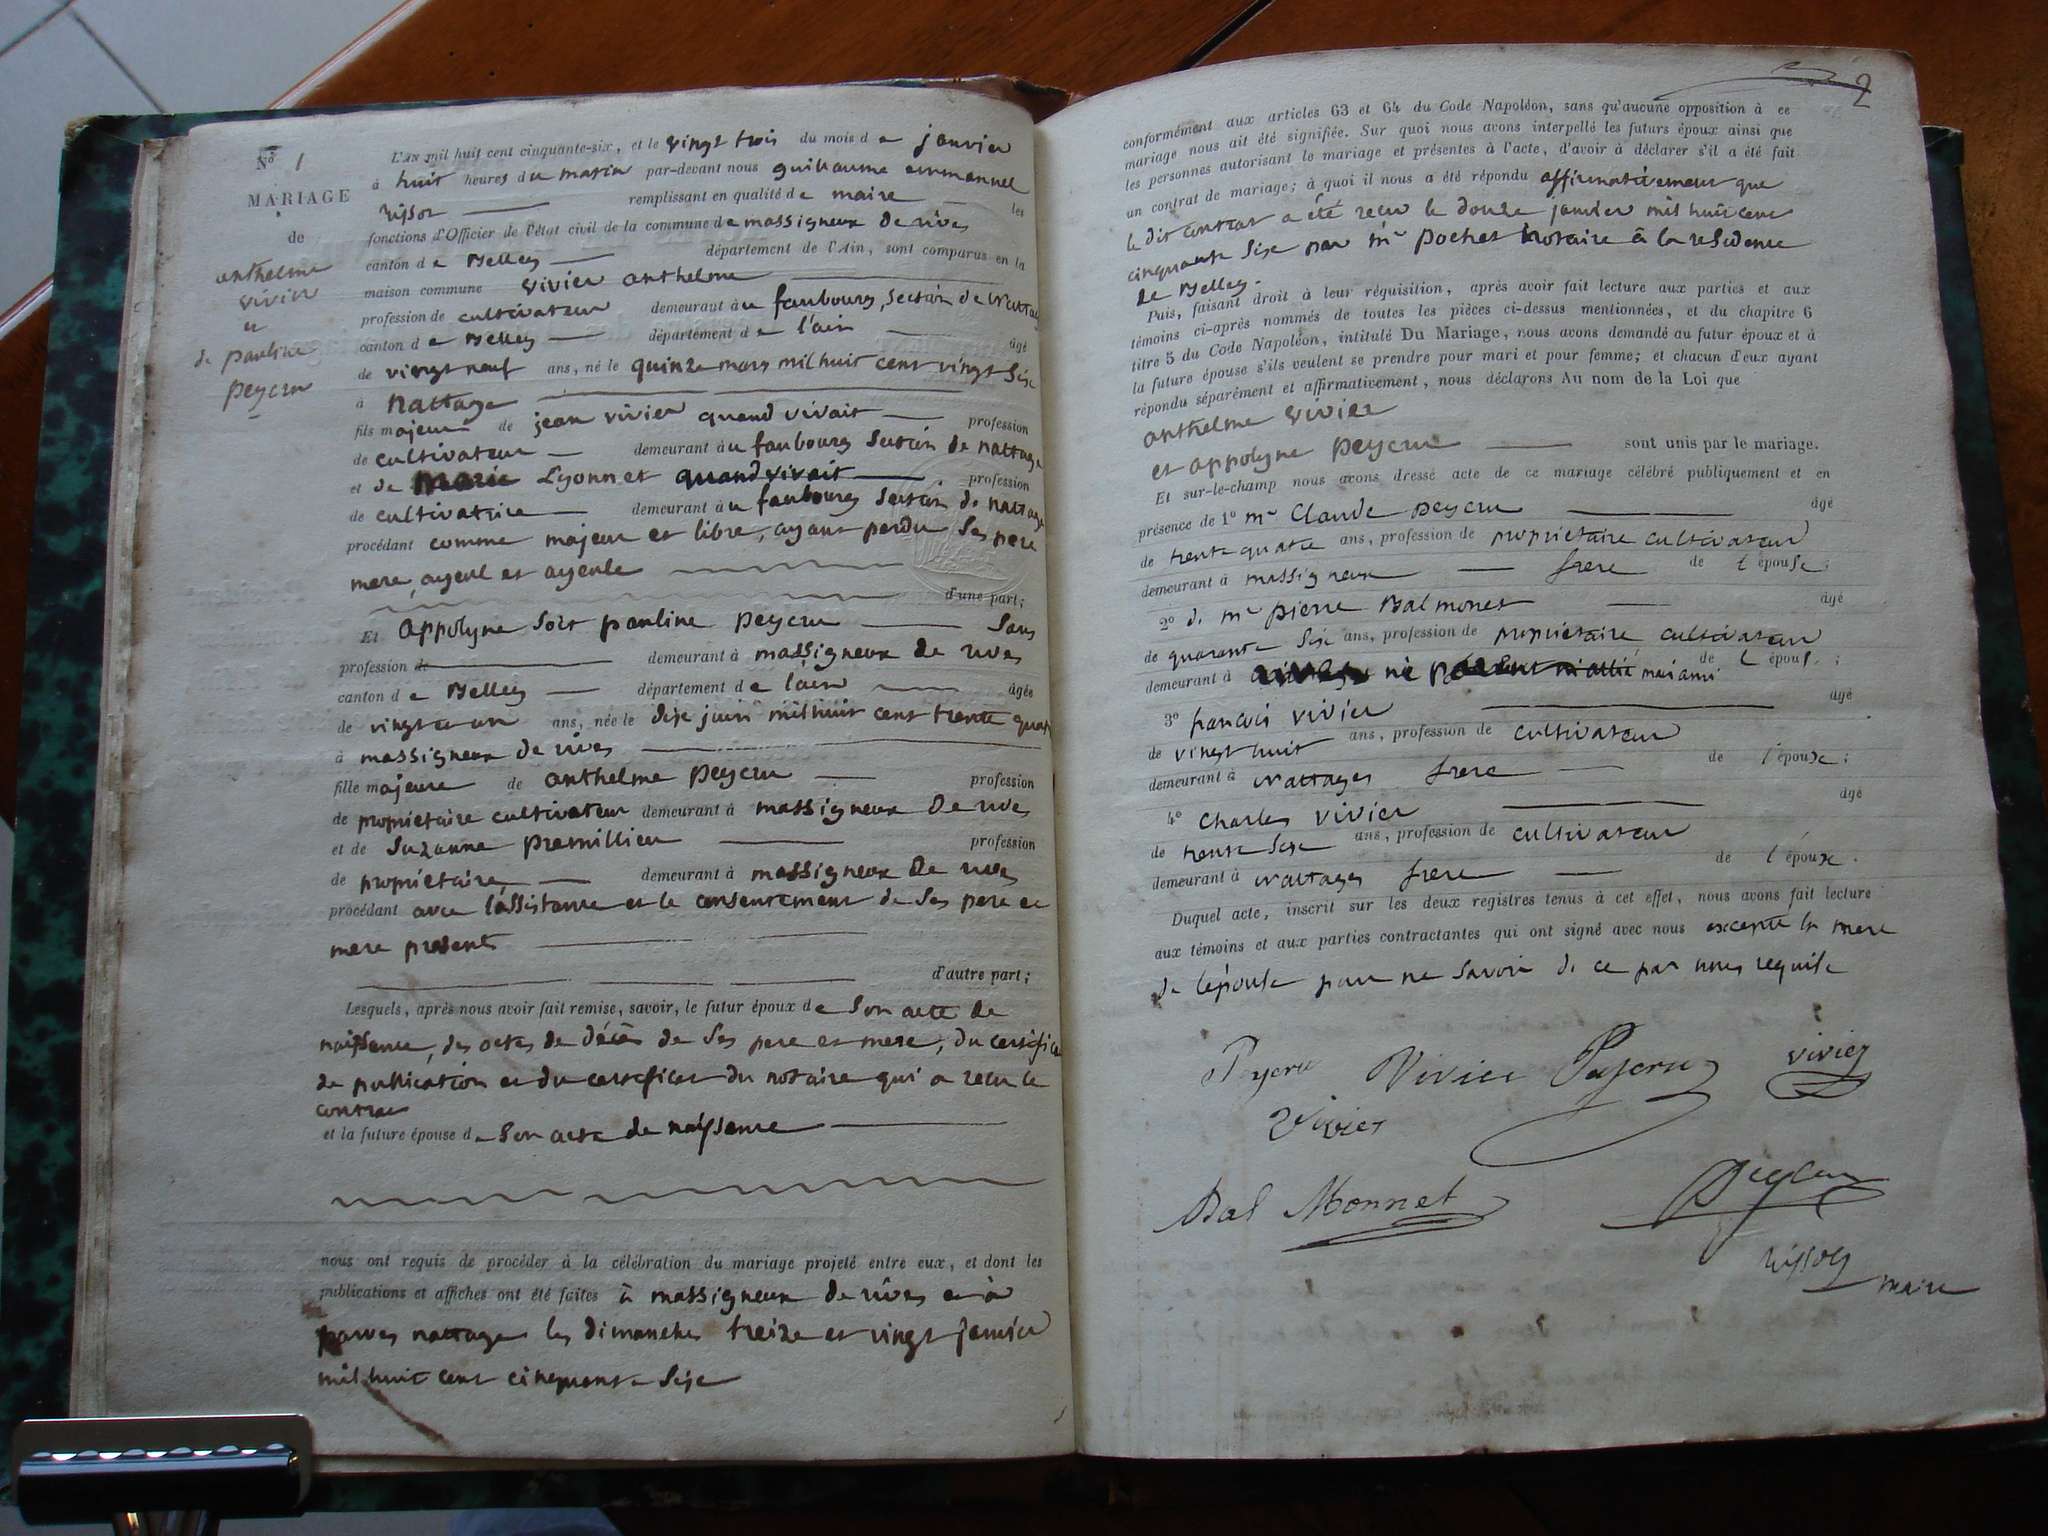 N° 1
MARIAGE
de
anthelme
vivier
et
de pauline
peycru
L'AN mil huit cent cinquante-six, et le vingt trois du mois de janvier
à huit heures du matin par-devant nous guillaume emmanuel
rissot remplissant en qualité de maire les
fonctions d'Officier de l'état civil de la commune de massigneux de rives
canton de Belley département de l'Ain, sont comparus en la
maison commune vivier anthelme
profession de cultivateur demeurant au faubourg, section de Nattage
canton de Belley département de l'ain âgé
de vingt neuf ans, né le quinze mars mil huit cent vingt six
à Nattage
fils majeur de jean vivier quand vivait profession
de cultivateur demeurant au faubourg section de nattage
et de Marie Lyonnet quand vivait profession
de cultivatrice demeurant au faubourg section de nattage
procédant comme majeur et libre, ayant perdu ses pere
mere, ayeul et ayeule
d'une part;
Et appolyne soit pauline peycru sans
profession de demeurant à massigneux de rives
canton de Belley département de l'ain âgée
de vingt et un ans, née le dix juin mil huit cent trente quatre
à massigneux de rives
fille majeure de anthelme peycru profession
de propriétaire cultivateur demeurant à massigneux de rives
et de suzanne premillieu profession
de propriétaire demeurant à massigneux de rives
procédant avec l'assistance et le consentement de ses pere et
mere présents
d'autre part;
Lesquels, après nous avoir fait remise, savoir, le futur époux de son acte de
naissance, des actes de décès de ses pere et mere, du certificat
de publication et du certificat du notaire qui a reçu le
contrat
et la future épouse de son acte de naissance
nous ont requis de procéder à la célébration du mariage projeté entre eux, et dont les
publications et affiches ont été faites à massigneux de rives et à
parves nattages les dimanches treize et vingt janvier
mil huit cent cinquante six
2
conformément aux articles 63 et 64 du Code Napoléon, sans qu'aucune opposition à ce
mariage nous ait été signifiée. Sur quoi nous avons interpellé les futurs époux ainsi que
les personnes autorisant le mariage et présentes à l'acte, d'avoir à déclarer s'il a été fait
un contrat de mariage; à quoi il nous a été répondu affirmativement que
le dit contrat a été reçu le douze janvier mil huit cent
cinquante six par mr pochet notaire à la residence
de Belley.
Puis, faisant droit à leur réquisition, après avoir fait lecture aux parties et aux
témoins ci-après nommés de toutes les pièces ci-dessus mentionnées, et du chapitre 6
titre 5 du Code Napoléon, intitulé Du Mariage, nous avons demandé au futur époux et à
la future épouse s'ils veulent se prendre pour mari et pour femme; et chacun d'eux ayant
répondu séparément et affirmativement, nous déclarons Au nom de la Loi que
anthelme vivier
et appolyne peycru sont unis par le mariage.
Et sur-le-champ nous avons dressé acte de ce mariage célébré publiquement et en
présence de 1° mr Claude peycru âgé
de trente quatre ans, profession de propriétaire cultivateur
demeurant à massigneux frere de l'épouse;
2° de mr pierre Balmonet âgé
de quarante six ans, profession de propriétaire cultivateur
demeurant à ni parent ni allié mais ami de l'épous. ;
3° francois vivier âgé
de vingt huit ans, profession de cultivateur
demeurant à Nattages frere de l'époux;
4° Charles vivier âgé
de trente six ans, profession de cultivateur
demeurant à Nattages frere de l'époux.
Duquel acte, inscrit sur les deux registres tenus à cet effet, nous avons fait lecture
aux témoins et aux parties contractantes qui ont signé avec nous excepté la mere
de l'épouse pour ne savoir de ce par nous requise
Peycru Vivier Peycru vivier
Vivier
Bal Monnet Peycru
rissot
maire